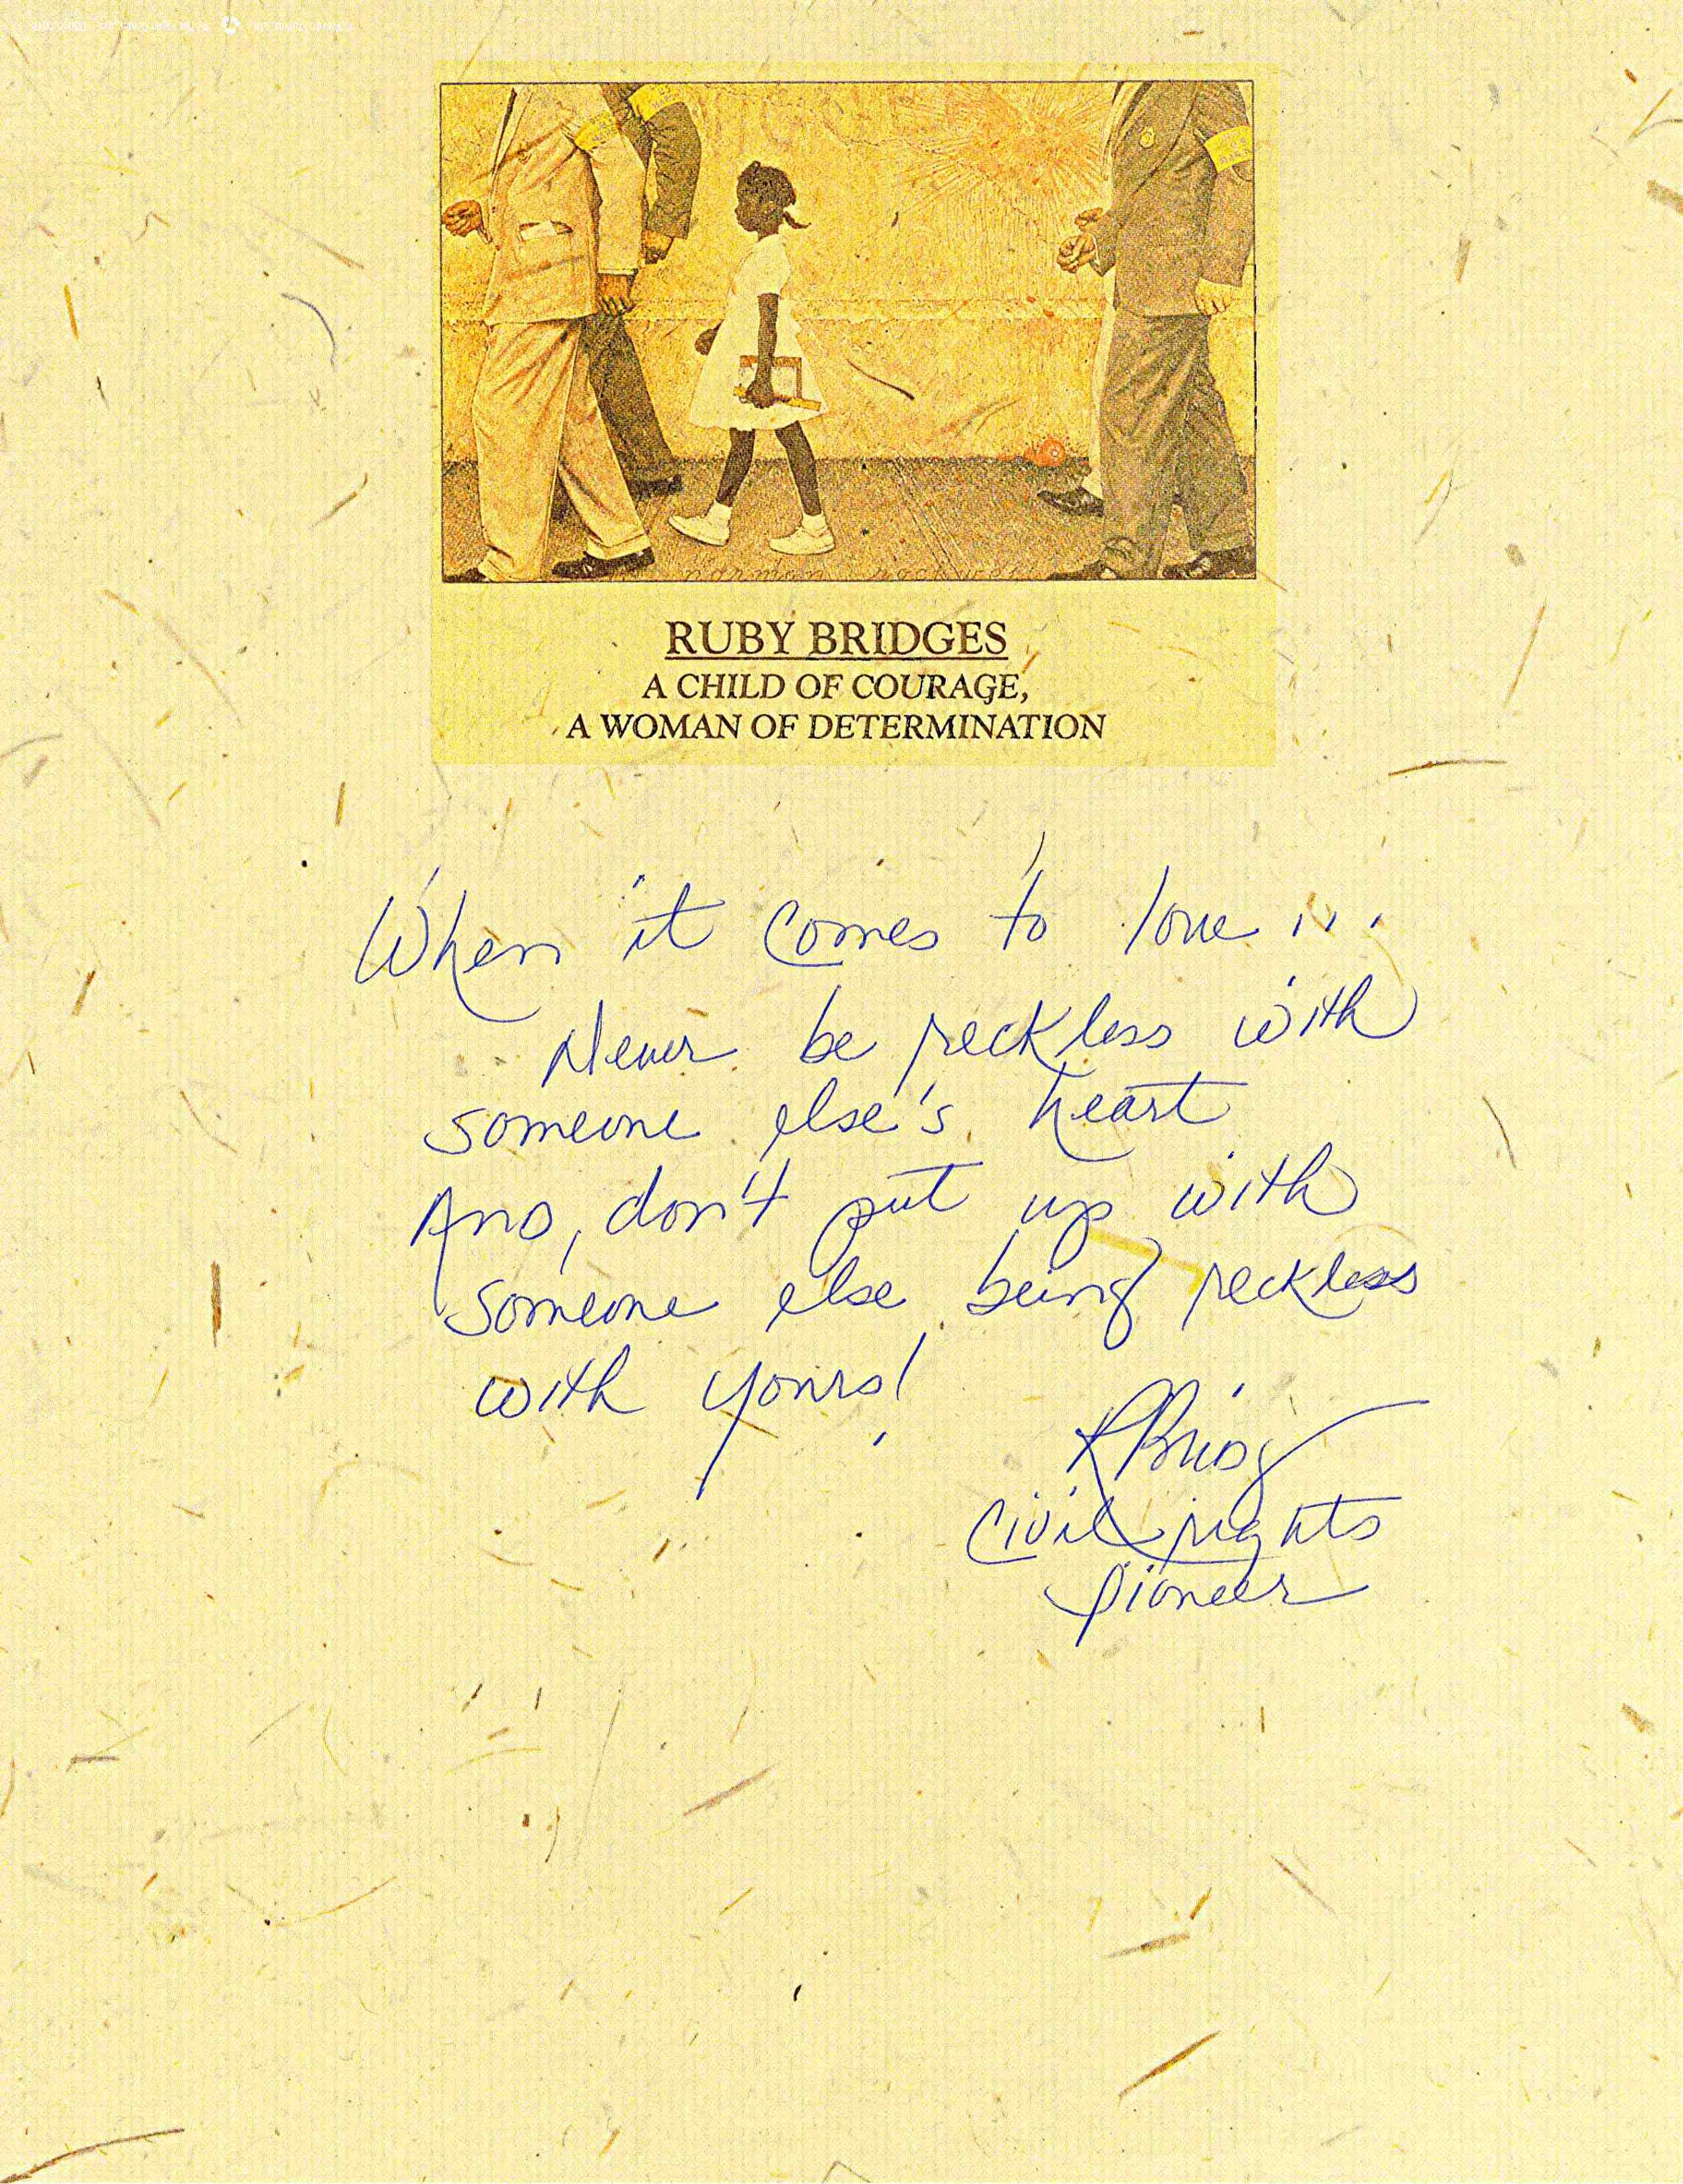 norman rockwell
RUBY BRIDGES
A CHILD OF COURAGE,
A WOMAN OF DETERMINATION
When it comes to love...
Never be reckless with
someone else's heart
And, don't put up with
someone else being reckless
with yours!
RBridg
Civil rights
pioneer